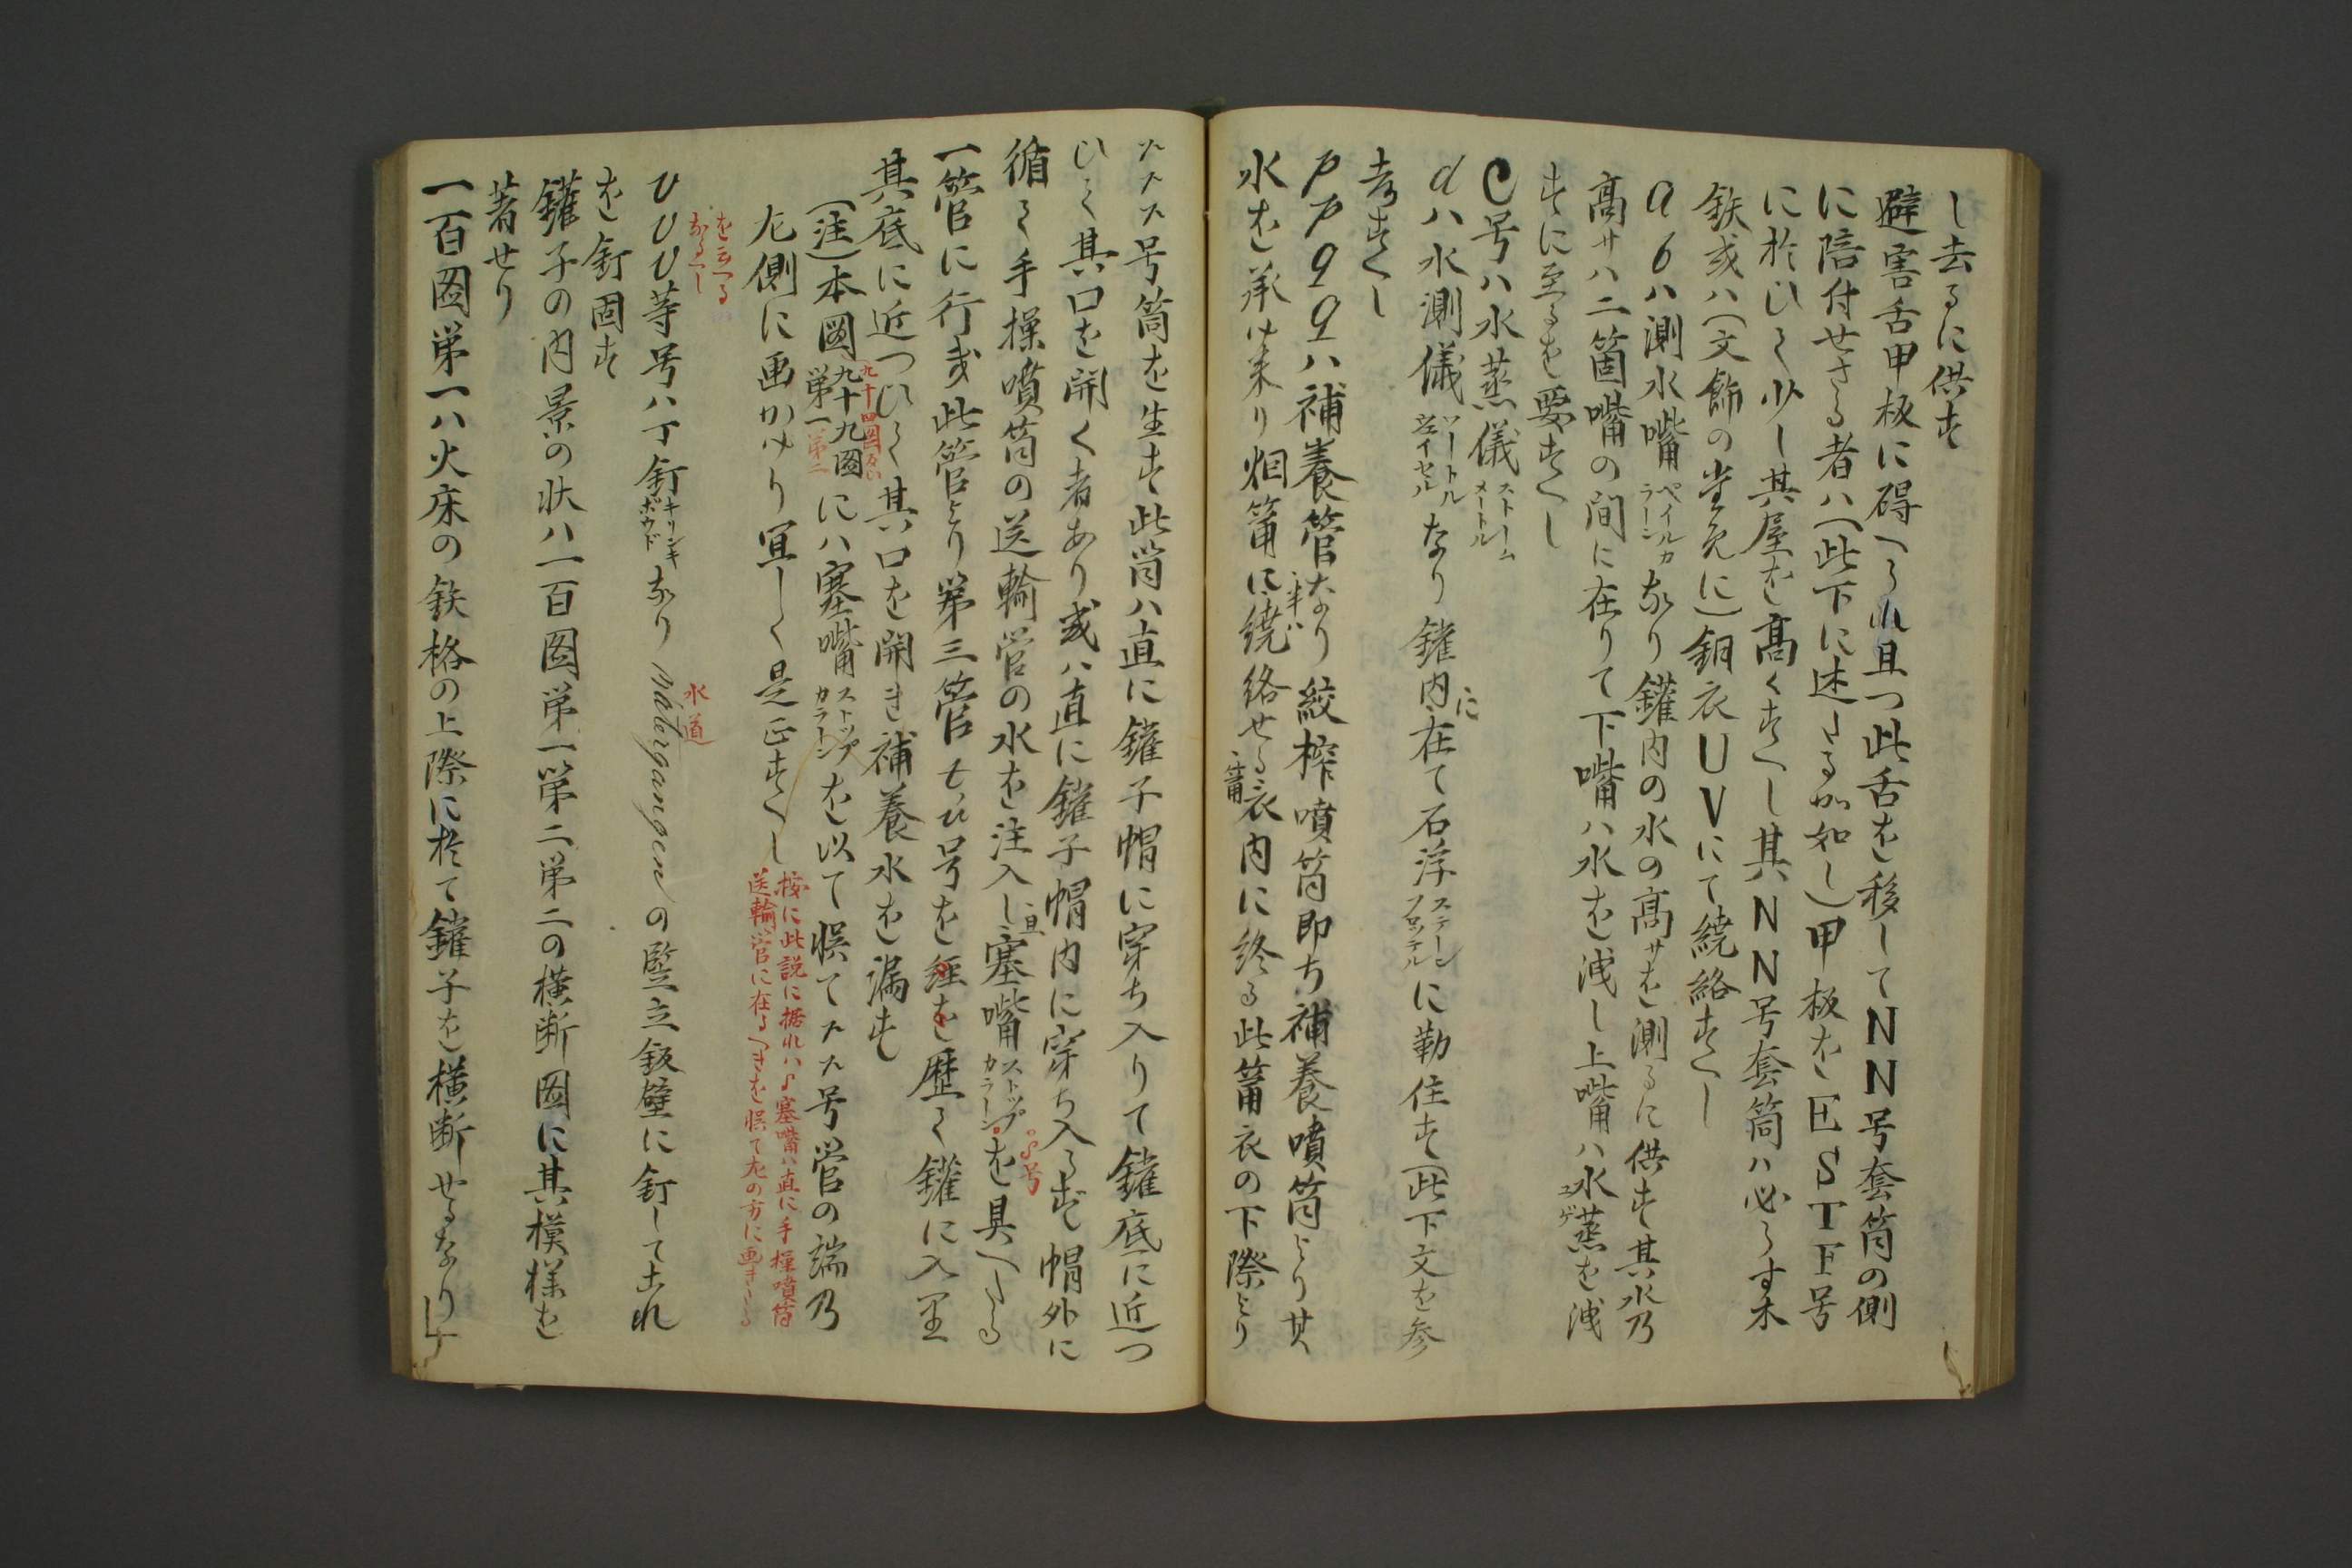 し去るに供す
避害舌甲板に碍へられ且つ此舌を移してNN号套筒の側
に陪付せさる者ハ(此下に述たるか如し)甲板をESTF号
に於ひて少し其屋を高くすへし其NN号套筒ハ必らす木
鉄或ハ(文飾の為に)銅衣UVにて繞絡すへし
abハ測水嘴ペイルカラーンなり鑵内の水の高サを測るに供す其水乃
高サハ二箇嘴の間に在りて下嘴ハ水を洩し上嘴ハ水蒸を洩
すに至るを要すへし
C号ハ水蒸儀ストームメートル
dハ水測儀ハートルウェイセルなり鑵内に在て石浮ステーンフロッテルに勒住す(此下文を参
考すへし
PPqqハ補養管なり絞搾噴筒即ち補養噴筒より其
水を承け来り烟筩に繞絡せる筩衣内に終る此筩衣の下際より
号筒を生す此筒ハ直に鑵子帽に穿ち入りて鑵底に近つ
ひて其口を開く者あり或ハ直に鑵子帽内に穿ち入らす帽外に
循て手操噴筒の送輸管の水を注入し且塞嘴ストップカラーンを具へたる
一管に行或此管より第三管号を経を歴て鑵に入里
其底に近つひて其口を開き補養水を漏す
(注)本図九十九図第一にハ塞嘴ストップカラーンを以て悞て号管の端乃
九十四図
第二
左側に画かけり宜しく是正すへし
按に此説に据れハ塞嘴ハ直に手操噴筒
送輸管に在るへきを悞て左の方に画きたる
を云へる
なるへし
等号ハ丁釘キリンキボウドなり水道watergangenの竪立鈑壁に釘して之れ
を釘固す
鑵子の内景の状ハ一百図第一第二第二の横断図に其模様を
著せり
一百図第一ハ火床の鉄格の上際に於て鑵子を横断せるなり